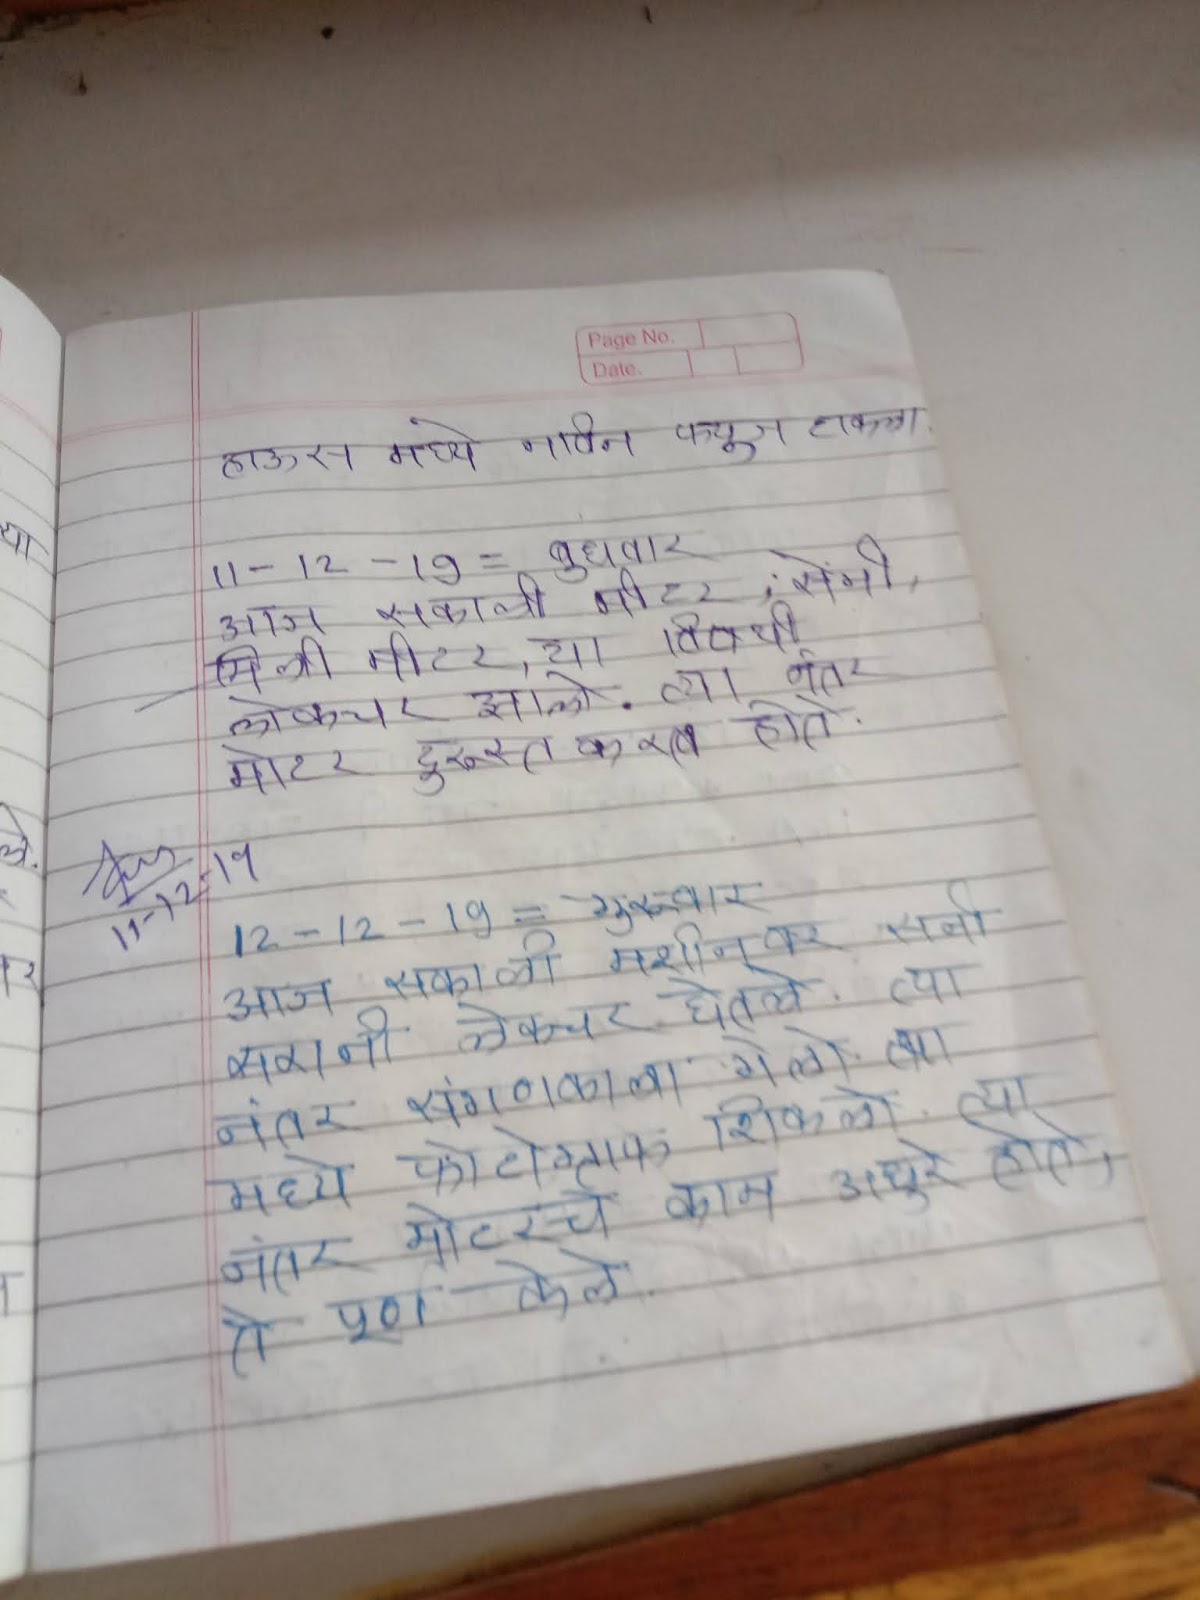 Page No.
Date.
हाऊस मध्ये नविन फ्यूज टाकला.
11-12-19= बुधवार
आज सकाळी मीटर, सेंमी,
मिली मीटर, या विषयी
लेक्चर झाले. त्या नंतर
मोटर दुरुस्त करत होते.
11-12-19
12-12-19= गुरुवार
आज सकाळी मशीनवर सनी
सरानी लेक्चर घेतले. त्या
नंतर संगणकाला गेलो त्या
मध्ये फोटोग्राफ शिकलो. त्या
नंतर मोटरचे काम अधुरे होते,
ते पूर्ण केले.